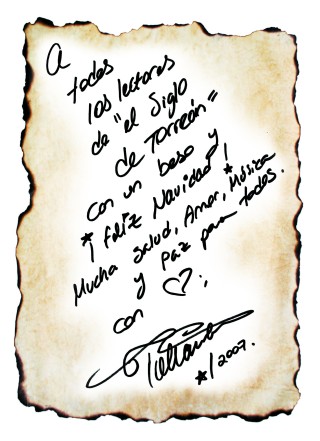 A
todos
los lectores
de "el Siglo
de Torreón"
con un beso y
¡Feliz Navidad!
Mucha Salud, Amor, Música
y Paz para todos.
con ♡;
2007.